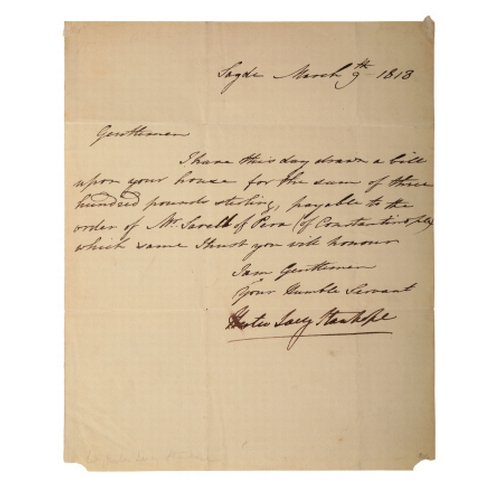 Sayde March 9th 1813
Gentlemen
I have this day drawn a bill
upon your house for the sum of three
hundred pounds sterling, payable to the
order of Mr. Savell of Pera (of Constantinople)
which same I trust you will honour
I am Gentlemen
Your Humble Servant
Hester Lucy Stanhope